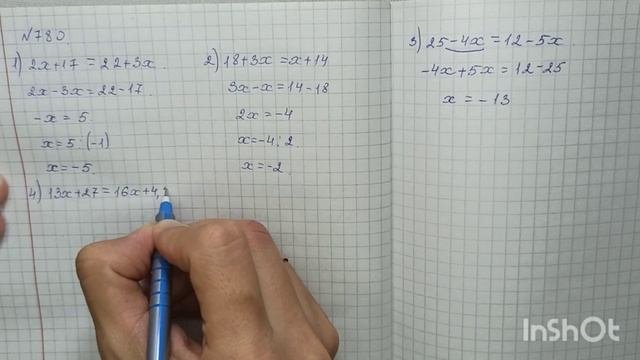 №780.
1) 2x+17=22+3x.
2x-3x=22-17.
-x=5
x=5:(-1)
x=-5.
2) 18+3x=x+14
3x-x=14-18
2x=-4
x=-4:2
x=-2.
3) 25-4x=12-5x
-4x+5x=12-25
x=-13
4) 13x+27=16x+4,
InShOt